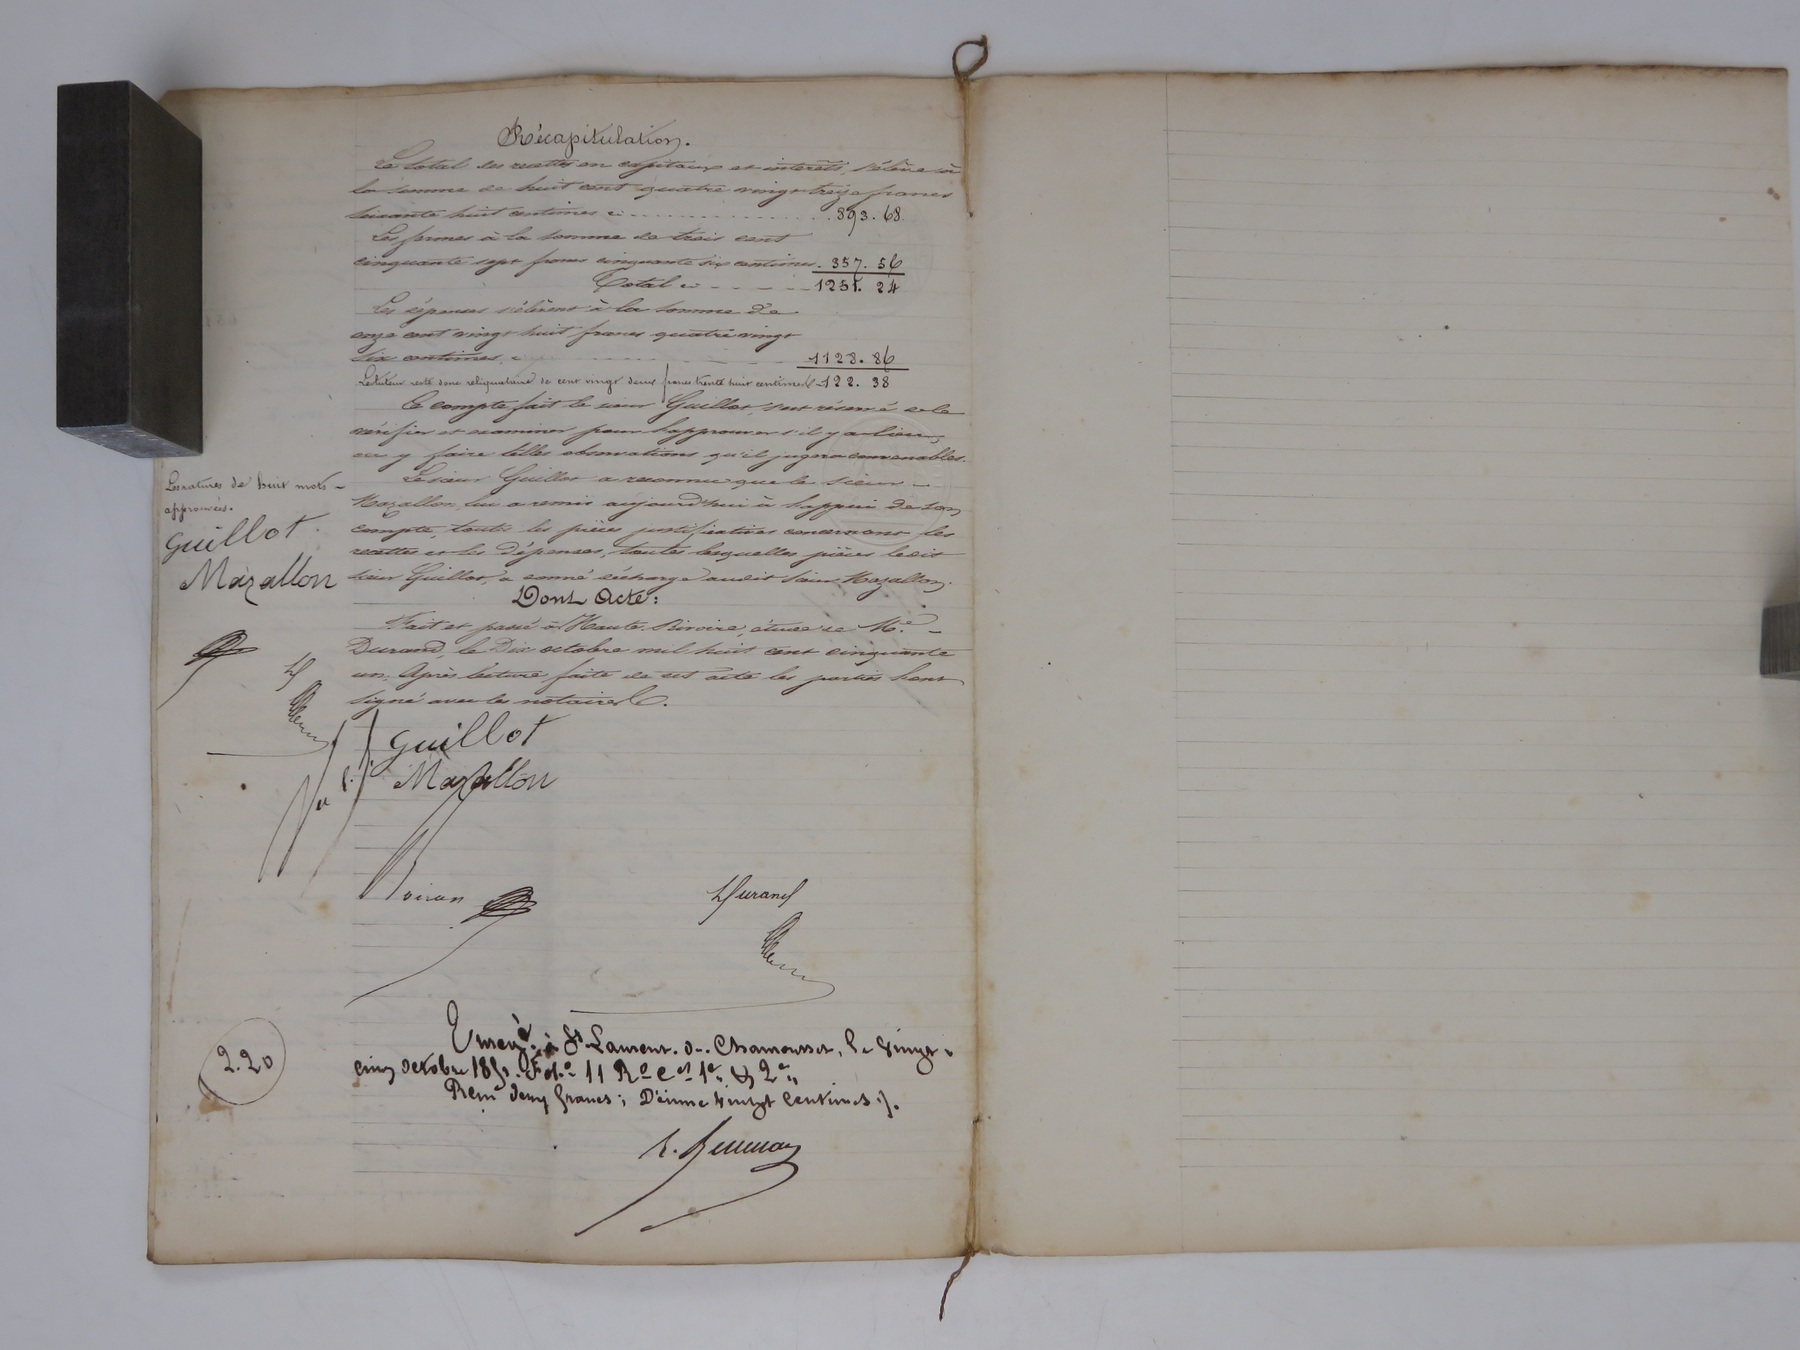 Récapitulation.
Le total des recettes en capitaux et intérêts, s'élève à
la somme de huit cent quatre vingt treize francs
soixante huit centimes ci . . . . . . . . . 893. 68
Les fermes à la somme de trois cent
cinquante sept francs cinquante six centimes . 357. 56
Total ci - - - - 1251. 24
Les dépenses s'élèvent à la somme de
onze cent vingt huit francs quatre vingt
six centimes, ci 1128. 86
Le tuteur reste donc reliquataire de cent vingt deux francs trente huit centimes 122. 38
Ce compte fait le sieur Guillot, s'est réservé de le
vérifier et examiner pour l'approuver s'il y a lieu,
ou y faire telles observations qu'il jugera convenables.
Le sieur Guillot a reconnu que le sieur
Mazallon, lui a remis aujourd'hui à l'appui de son
compte, toutes les pièces justificatives concernant les
recettes et les dépenses, toutes lesquelles pièces ledit
sieur Guillot, a donné décharge audit sieur Mazallon.
Dont Acte:
Fait et passé à Haute-Rivoire, étude de Me
Durand, le Dix octobre mil huit cent cinquante
un. Après lecture faite de cet acte les parties l'ont
signé avec les notaires.
Les ratures de huit mots
approuvées.
Guillot
Mazallon
Guillot
Mazallon
Durand
2.20
Enregé. à St Laurent-de-Chamousset, le vingt
cinq octobre 1851. Fol.o 11 Ro Ces 1e, & 2e,
Reçu deux francs; Dixme vingt centimes.